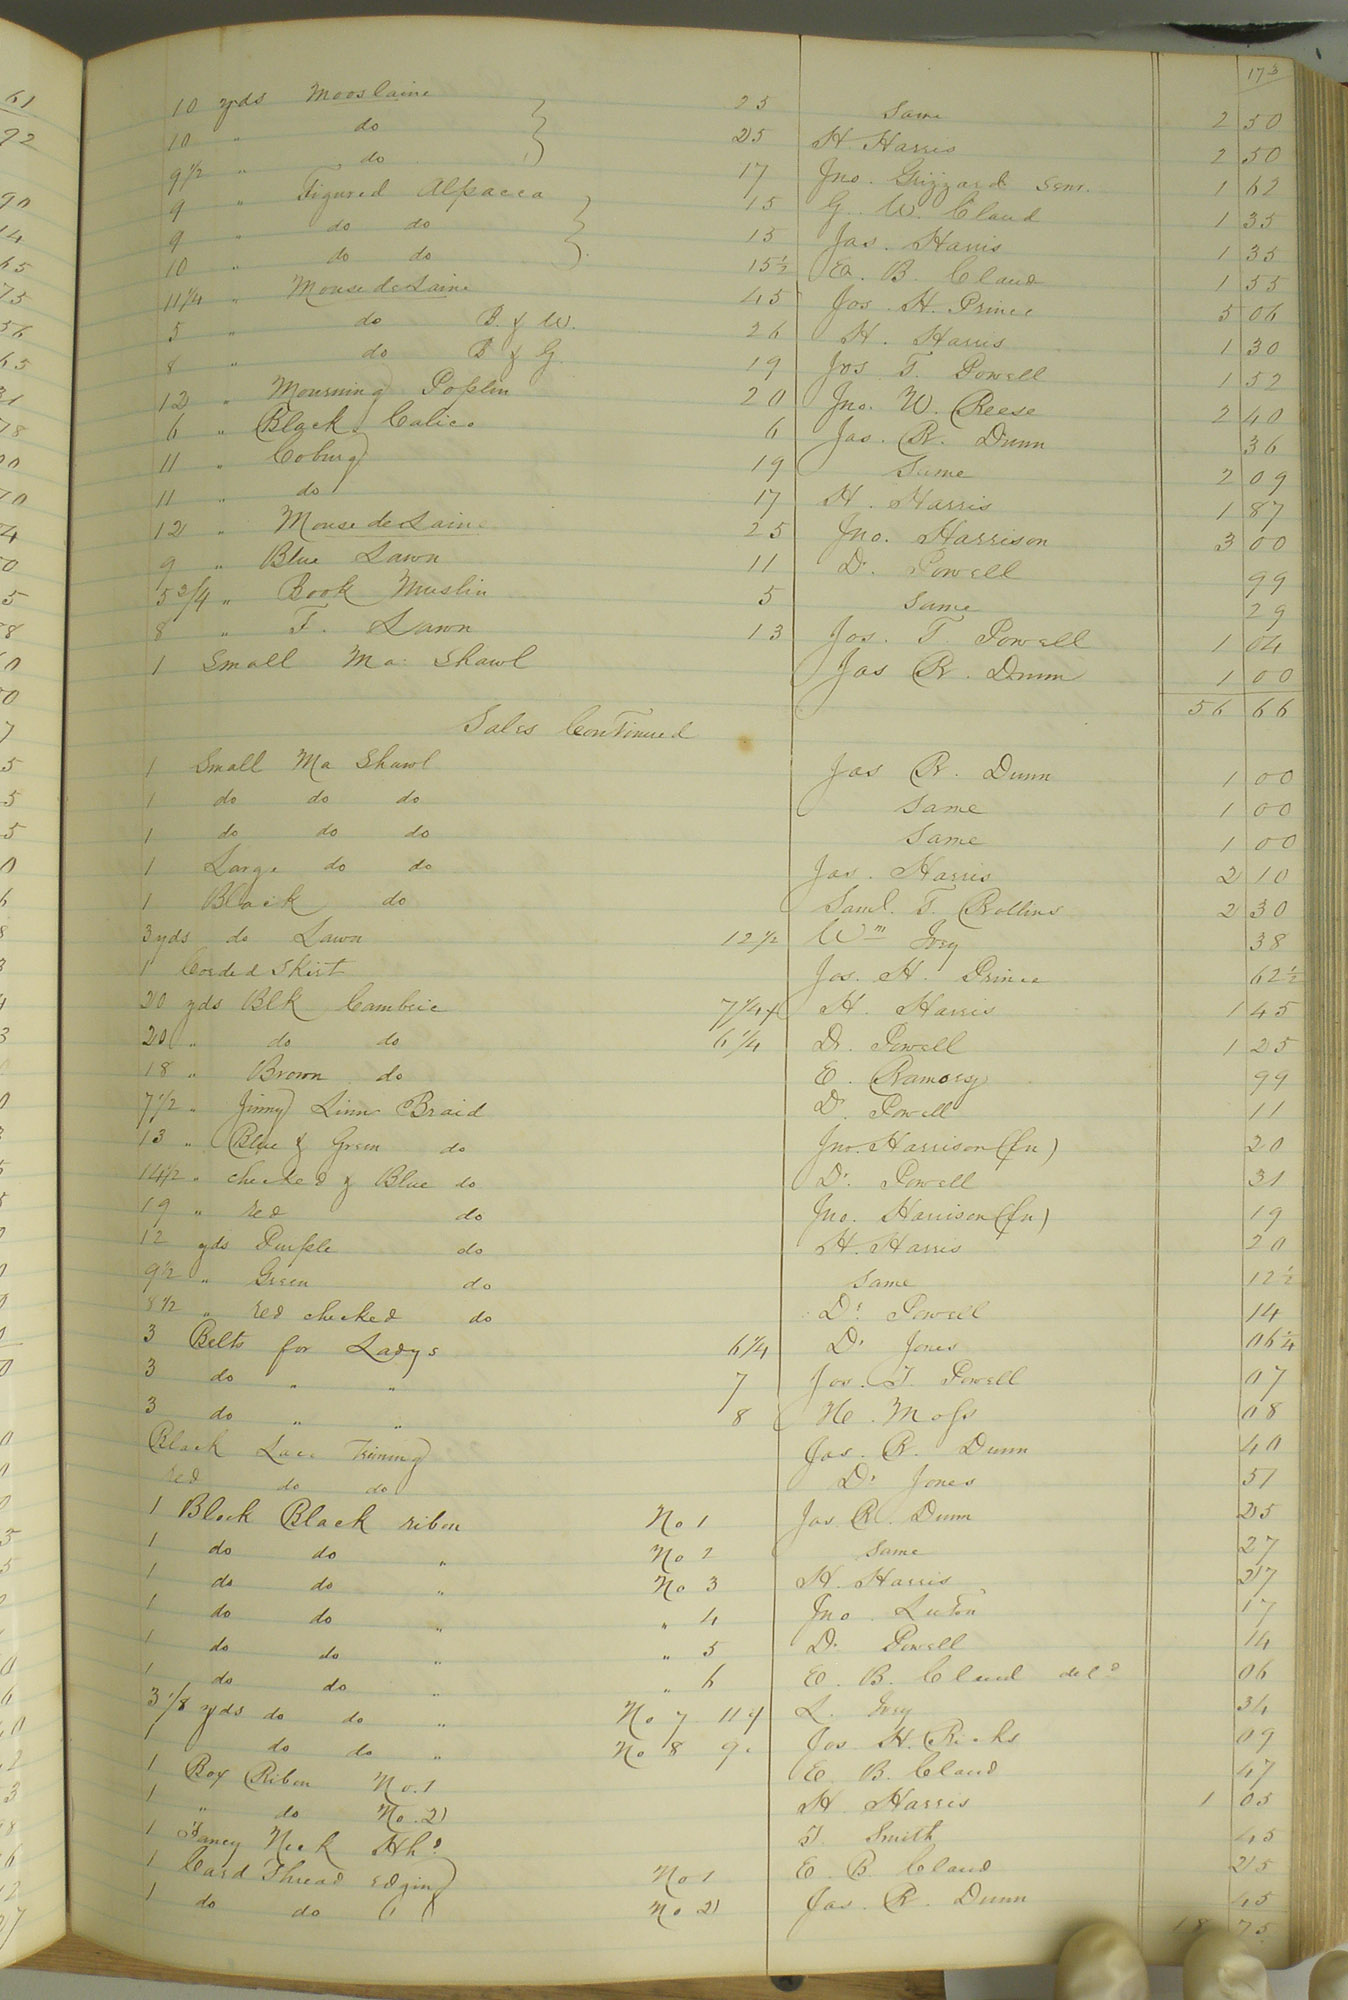 173
10 yds Mooslaine 25 Same 2 50
10 " do 25 H. Harris 2 50
9 1/2 " do 17 Jno. Grizzard Senr. 1 62
9 " Figured Alpacca 15 G. W. Claud 1 35
9 " do do 15 Jas. Harris 1 35
10 " do do 15 1/2 E. B. Claud 1 55
11 1/4 " Mouse de Laine 45 Jos. H. Prince 5 06
5 " do B. & W. 26 H. Harris 1 30
8 " do B & G 19 Jos. T. Powell 1 52
12 " Mourning Poplin 20 Jno. W. Reese 2 40
6 " Black Calico 6 Jas. R. Dunn 36
11 " Coburg 19 Same 2 09
11 " do 17 H. Harris 1 87
12 " Mouse de Laine 25 Jno. Harrison 3 00
9 " Blue Lawn 11 D. Powell 99
5 3/4 " Book Muslin 5 Same 29
8 " F. Lawn 13 Jos. T. Powell 1 04
1 Small Ma. Shawl Jas R. Dunn 1 00
56 66
Sales Continued
1 Small Ma Shawl Jas R. Dunn 1 00
1 do do do Same 1 00
1 do do do Same 1 00
1 Large do do Jas. Harris 2 10
1 Black do Saml. T. Rollins 2 30
3 yds do Lawn 12 1/2 Wm Ivey 38
1 Corded Skirt Jos. H. Prince 62 1/2
20 yds Blk Cambric 7 1/4 H. Harris 1 45
20 " do do 6 1/4 D. Powell 1 25
18 " Brown do E. Ramsey 99
7 1/2 " Jinny Linn Braid D. Powell 11
13 " Blue & Green do Jno. Harrison (fn) 20
14 1/2 " checked & Blue do Dr. Powell 31
19 " red do Jno. Harrison (fn) 19
12 yds Purple do H. Harris 20
9 1/2 " Green do Same 12 1/2
8 1/2 " red checked do Dr. Powell 14
3 Belts for Ladys 6 1/4 Dr Jones 06 1/4
3 do " " 7 Jos. T. Powell 07
3 do " " 8 H. Moss 08
Black Lace Triming Jas. R. Dunn 40
red do do Dr Jones 51
1 Block Black riben No 1 Jas R. Dunn 25
1 do do " No 2 Same 27
1 do do " No 3 H. Harris 27
1 do do " " 4 Jno. 17
1 do do " " 5 D. Powell 14
1 do do " " 6 E. B. Claud 06
3 1/8 yds do do " No 7 11 L. Ivey 34
do do " No 8 9 Jos. H. Ricks 09
1 Box Riben No. 1 E. B. Claud 47
1 " do No. 2 H. Harris 1 05
1 Fancy Neck Hk T. Smith 45
1 Card Thread edging No 1 E. B. Claud 25
1 do do No 2 Jas. R. Dunn 45
18 75